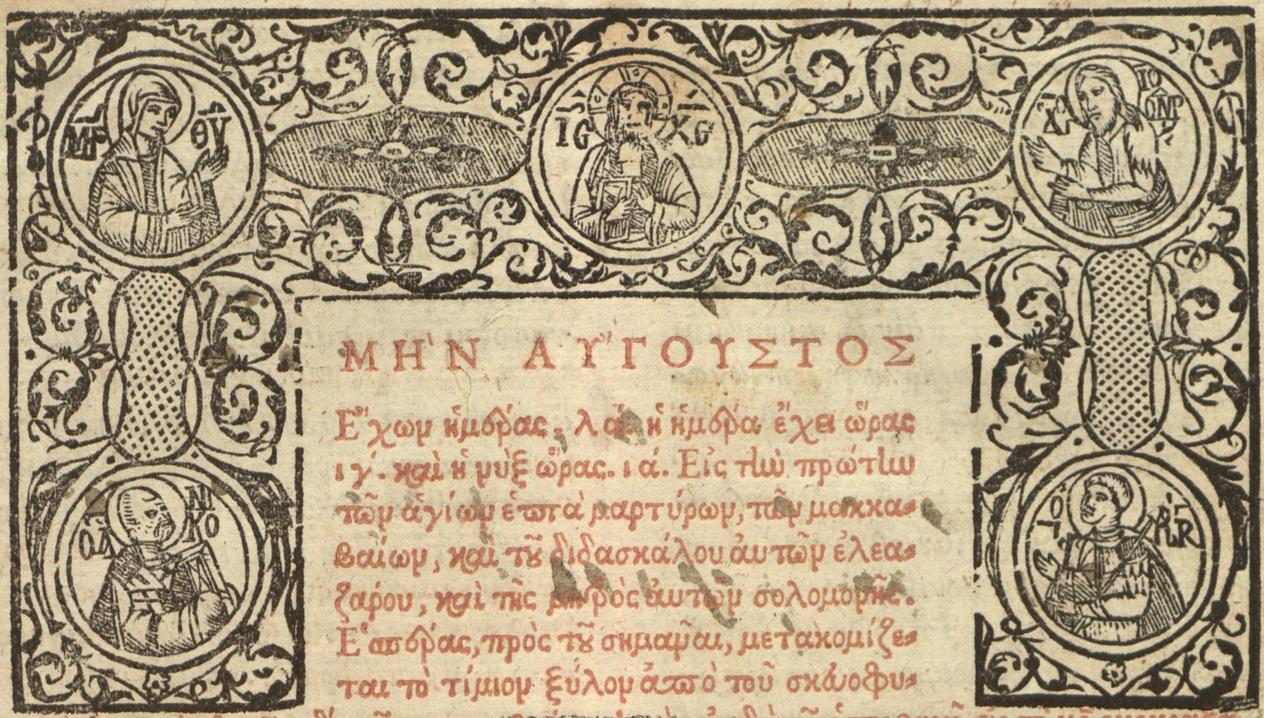 ΜΡ ΘΥ
IC XC
ΜΗῚΝ ΑΥ̓́ΓΟΥΣΤΟΣ
Ἔχων ἡμέρας, λά. ἡ ἡμέρα ἔχει ὥρας
ιγ́. καὶ ἡ νὺξ ὥρας. ιά. Εἰς τὴν πρώτην
τῶν ἁγίων ἑπτὰ μαρτύρων, τῶν μακκα-
βαίων, καὶ τοῦ διδασκάλου αὐτῶν ἐλεα-
ζάρου, καὶ τῆς μητρὸς αὐτῶν σολομονῆς.
Ἑσπέρας, πρὸς τοῦ σημαναι, μετακομίζε-
ται τὸ τίμιον ξύλον ἀπὸ τοῦ σκευοφυ-